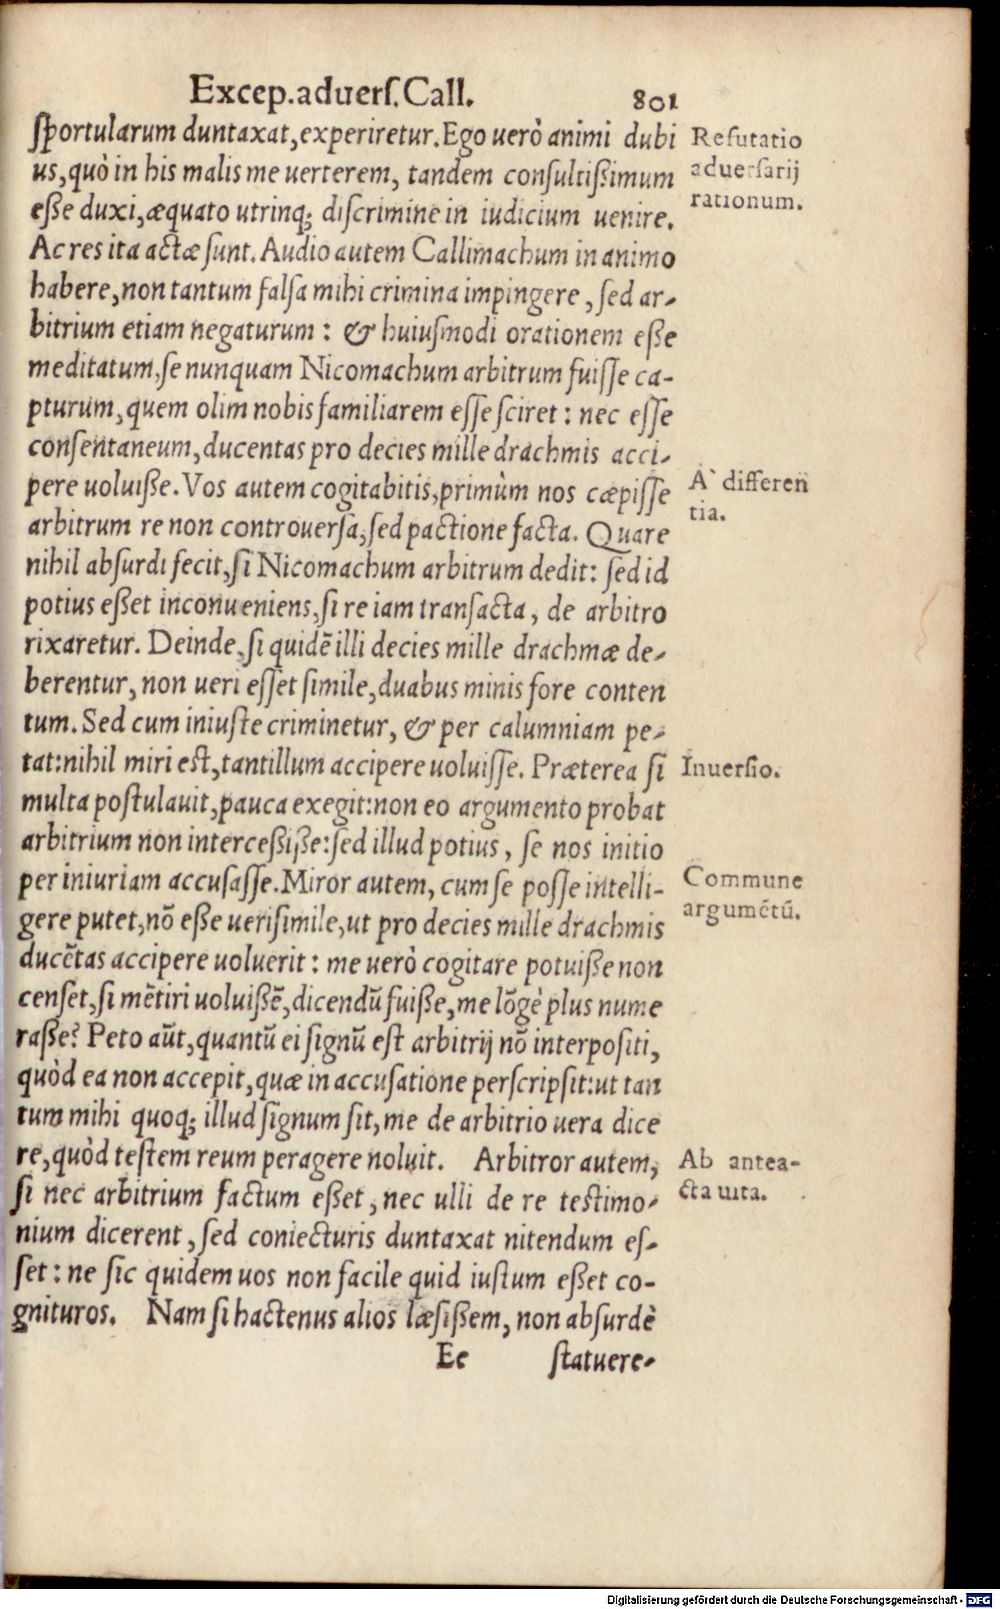 Excep. aduerſ. Call. 801
ſportularum duntaxat, experiretur. Ego uerò animi dubi
us, quò in his malis me uerterem, tandem conſultißimum
eße duxi, æquato utrinq; diſcrimine in iudicium uenire.
Ac res ita actæ ſunt. Audio autem Callimachum in animo
habere, non tantum falſa mihi crimina impingere, ſed ar-
bitrium etiam negaturum: & huiuſmodi orationem eße
meditatum, ſe nunquam Nicomachum arbitrum fuiſſe ca-
pturum, quem olim nobis familiarem eſſe ſciret: nec eſſe
conſentaneum, ducentas pro decies mille drachmis acci-
pere uoluiße. Vos autem cogitabitis, primùm nos cæpiſſe
arbitrum re non controuerſa, ſed pactione facta. Quare
nihil abſurdi fecit, ſi Nicomachum arbitrum dedit: ſed id
potius eßet inconueniens, ſi re iam tranſacta, de arbitro
rixaretur. Deinde, ſi quidē illi decies mille drachmæ de-
berentur, non ueri eſſet ſimile, duabus minis fore conten
tum. Sed cum iniuſte criminetur, & per calumniam pe-
tat: nihil miri est, tantillum accipere uoluiſſe. Præterea ſi
multa poſtulauit, pauca exegit: non eo argumento probat
arbitrium non interceßiße: ſed illud potius, ſe nos initio
per iniuriam accuſaſſe. Miror autem, cum ſe poſſe intelli-
gere putet, nō eße ueriſimile, ut pro decies mille drachmis
ducētas accipere uoluerit: me uerò cogitare potuiße non
cenſet, ſi mētiri uoluißē, dicendū fuiße, me lōgè plus nume
raße? Peto aūt, quantū ei ſignū est arbitrij nō interpoſiti,
quòd ea non accepit, quæ in accuſatione perſcripſit: ut tan
tum mihi quoq; illud ſignum ſit, me de arbitrio uera dice
re, quòd teſtem reum peragere noluit. Arbitror autem,
ſi nec arbitrium factum eßet, nec ulli de re teſtimo-
nium dicerent, ſed coniecturis duntaxat nitendum eſ-
ſet: ne ſic quidem uos non facile quid iuſtum eßet co-
gnituros. Nam ſi hactenus alios læſißem, non abſurdè
Ee ſtatuere-
Refutatio
aduerſarij
rationum.
A` differen
tia.
Inuerſio.
Commune
argumētū.
Ab antea-
cta uita.
Digitalisierung gefördert durch die Deutsche Forschungsgemeinschaft - DFG